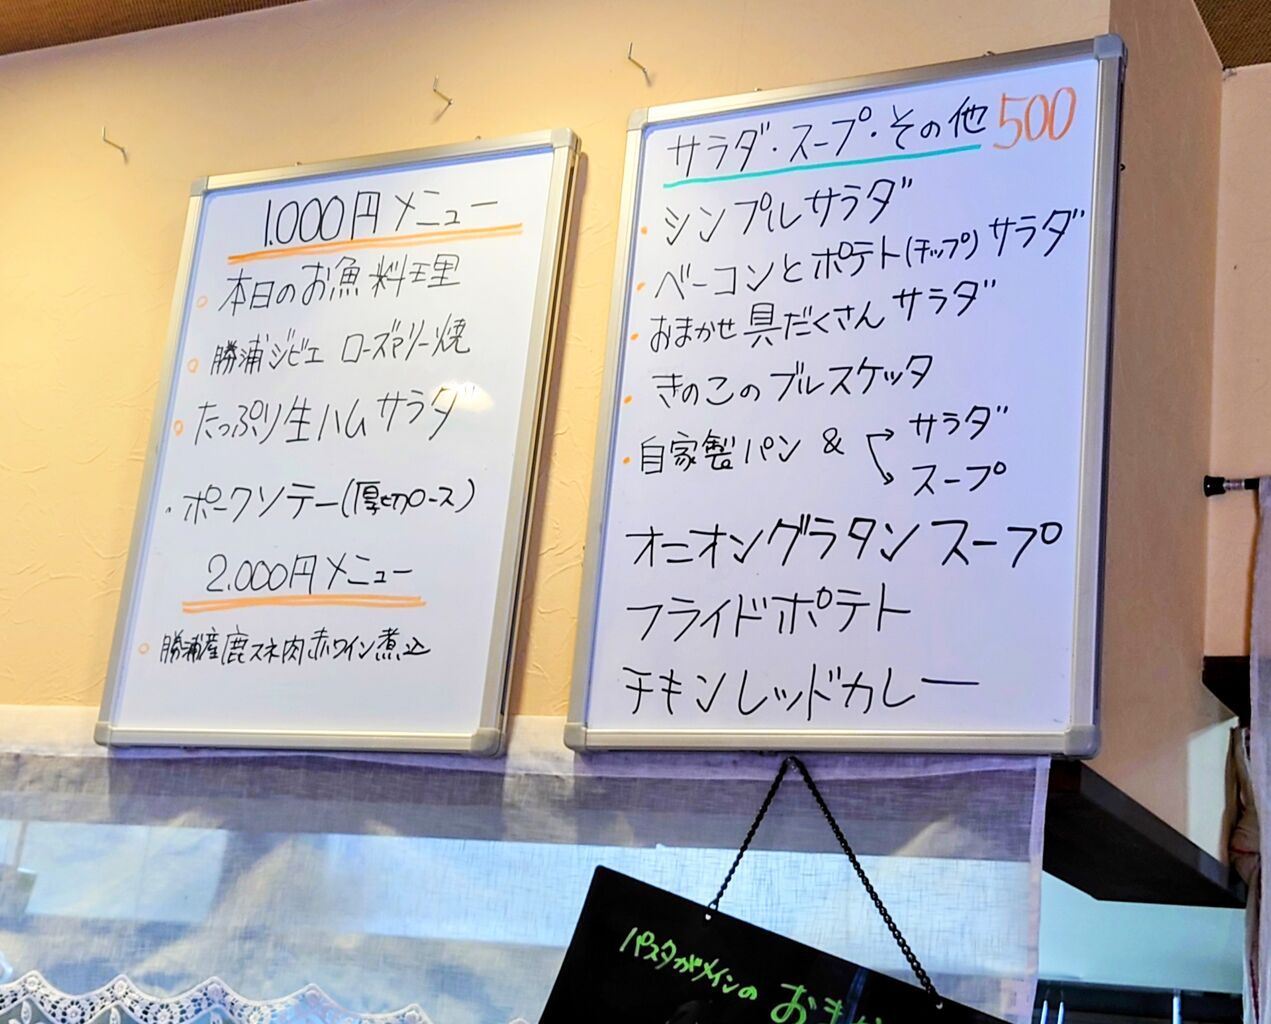 1.000円メニュー
本日のお魚料理
勝浦ジビエ ローズマリー焼
たっぷり生ハムサラダ
・ポークソテー(厚切ロース)
2.000円メニュー
勝浦産鹿スネ肉赤ワイン煮込
サラダ・スープ・その他 500
・シンプルサラダ
・ベーコンとポテト(チップ)サラダ
・おまかせ具だくさんサラダ
・きのこのブルスケッタ
・自家製パン & サラダ
スープ
オニオングラタンスープ
フライドポテト
チキンレッドカレー
パスタがメインの